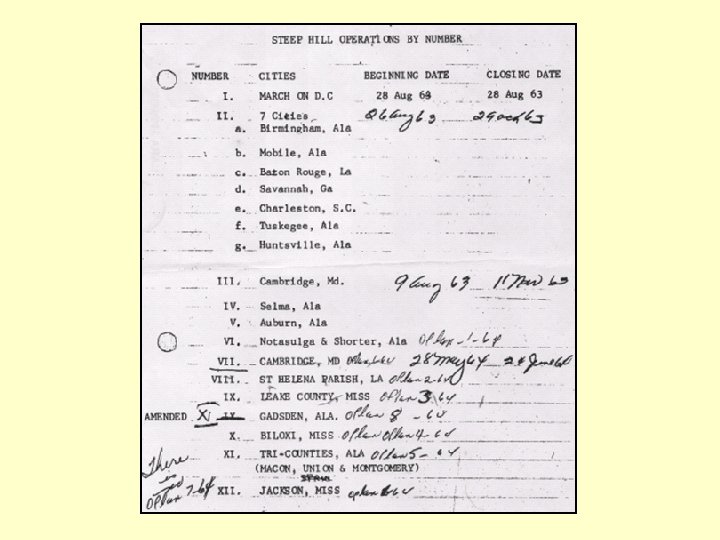 STEEP HILL OPERATIONS BY NUMBER
NUMBER CITIES BEGINNING DATE CLOSING DATE
I. MARCH ON D.C 28 Aug 63 28 Aug 63
II. 7 Cities 26 Aug 63 2 Oct 63
a. Birmingham, Ala
b. Mobile, Ala
c. Baton Rouge, La
d. Savannah, Ga
e. Charleston, S.C.
f. Tuskegee, Ala
g. Huntsville, Ala
III. Cambridge, Md. 9 Aug 63 11 Nov 63
IV. Selma, Ala
V. Auburn, Ala
VI. Notasulga & Shorter, Ala Oplan -1-64
VII. CAMBRIDGE, MD 28 May 64 June 64
VIII. ST HELENA PARISH, LA Oplan 2-64
IX. LEAKE COUNTY, MISS Oplan 3 64
AMENDED X GADSDEN, ALA. Oplan 8 - 64
X. BILOXI, MISS Oplan Oplan 4-64
XI. TRI-COUNTIES, ALA Oplan 5- 64
(MACON, UNION & MONTGOMERY)
There
OPlan 7-64
XII. JACKSON, MISS oplan 64